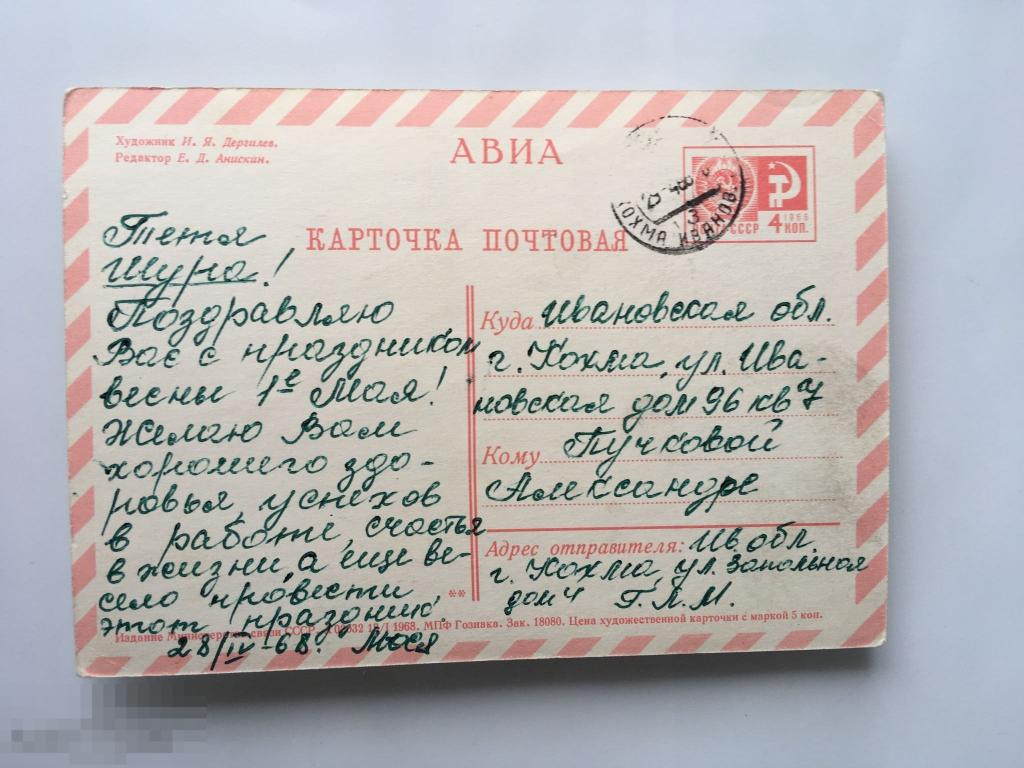 Художник И. Я. Дергилев.
Редактор Е. Д. Анискин.
АВИА
КАРТОЧКА ПОЧТОВАЯ
КОХМА ИВАНОВ
СССР
4 КОП.
1966
Тетя
Шура!
Поздравляю
Вас с праздником
весны 1е Мая!
Желаю Вам
хорошего здо-
ровья, успехов
в работе, счастья
в жизни, а еще ве-
село провести
этот праздник.
28/IV-68г. Люся
Куда Ивановская обл.
г. Кохма, ул. Ива-
новская дом 96 кв 7
Кому Пучковой
Александре
Адрес отправителя: Ив обл.
г. Кохма, ул. Запольная
дом 4 Г.Л.М.
**
Издание Министерства связи СССР. 18/I 1968. МПФ Гознака. Зак. 18080. Цена художественной карточки с маркой 5 коп.